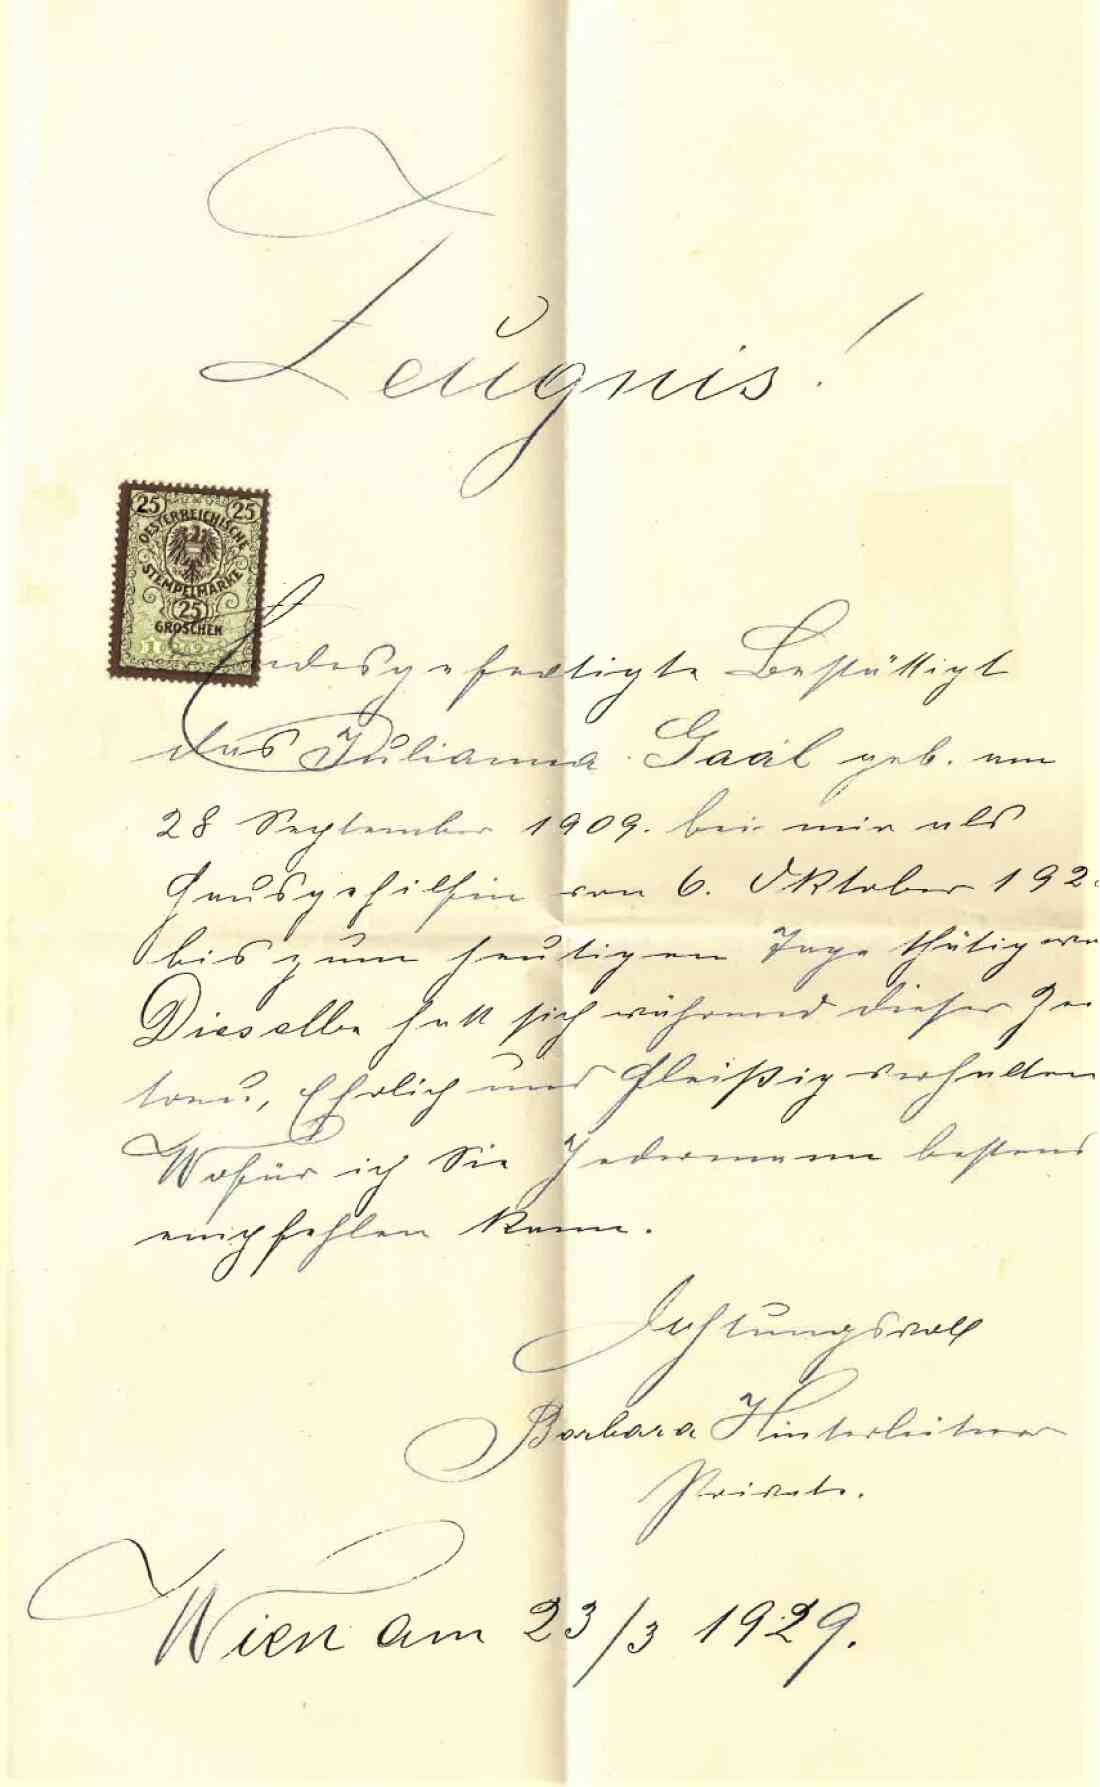 Zeugnis!
25 25
OESTERREICHISCHE
STEMPELMARKE
25
GROSCHEN
Endesgefertigte Bestättigt
das Julianna Gaál geb. am
28 September 1909. bei mir als
Hausgehilfin von 6. Oktober 192
bis zum heutigen Tage thätig wa
Dieselbe hatt sich während dieser Zei
treu, Ehrlich und Fleißig verhalten
Wofür ich Sie Jedermann bestens
empfehlen kann.
Achtungsvoll
Barbara Hinterleitner
Private.
Wien am 23/3 1929.